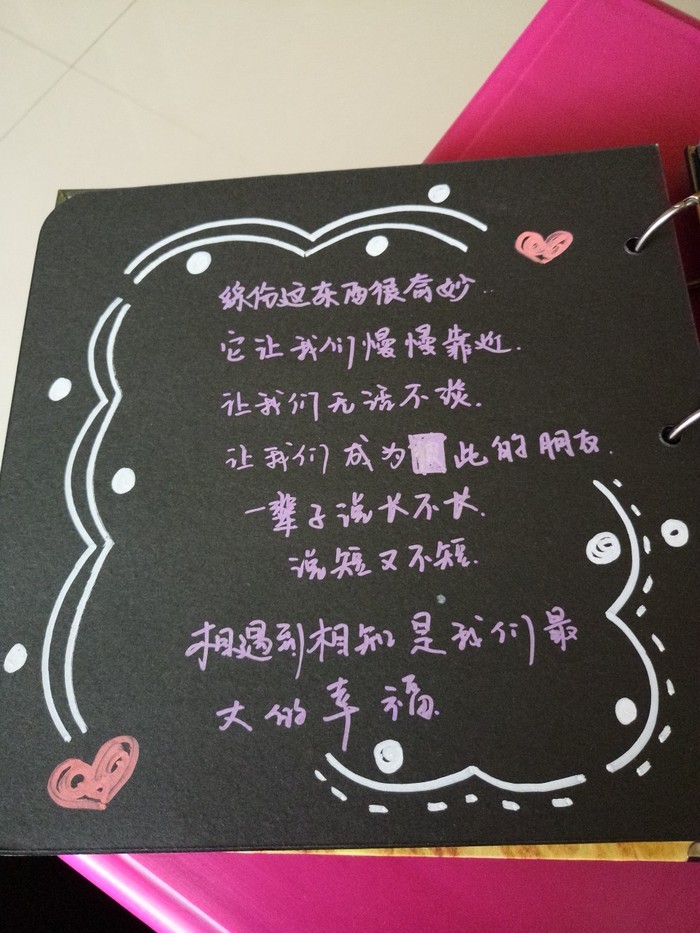 缘份这东西很奇妙..
它让我们慢慢靠近.
让我们无话不谈.
让我们成为 此的朋友.
一辈子说长不长.
说短又不短.
相遇到相知是我们最
大的幸福.